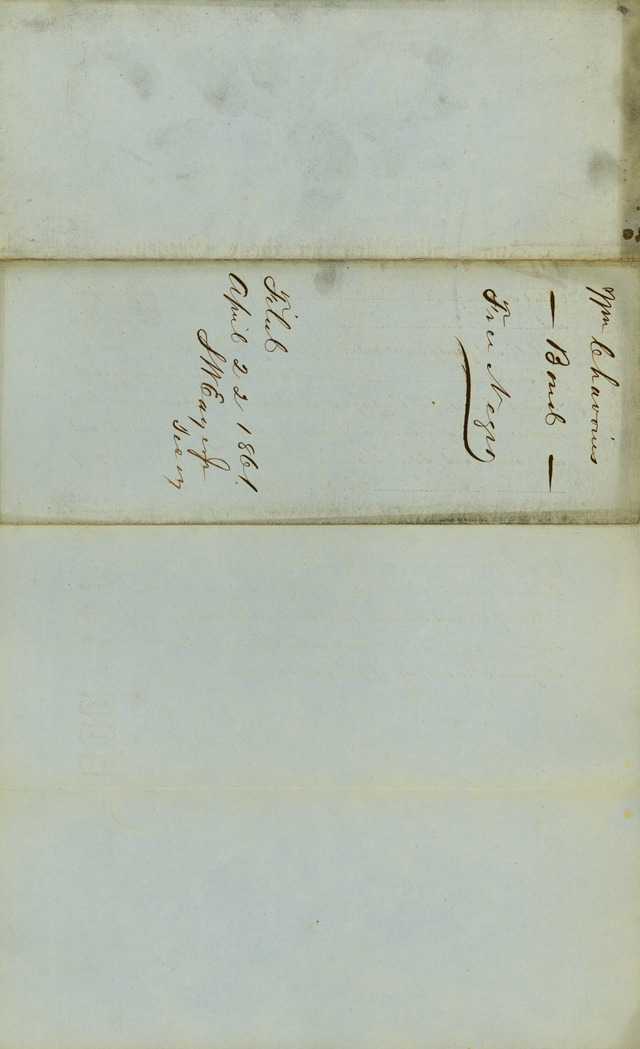 Wm Chavious
— Bond —
Free Negro
Filed
April 22 1861.